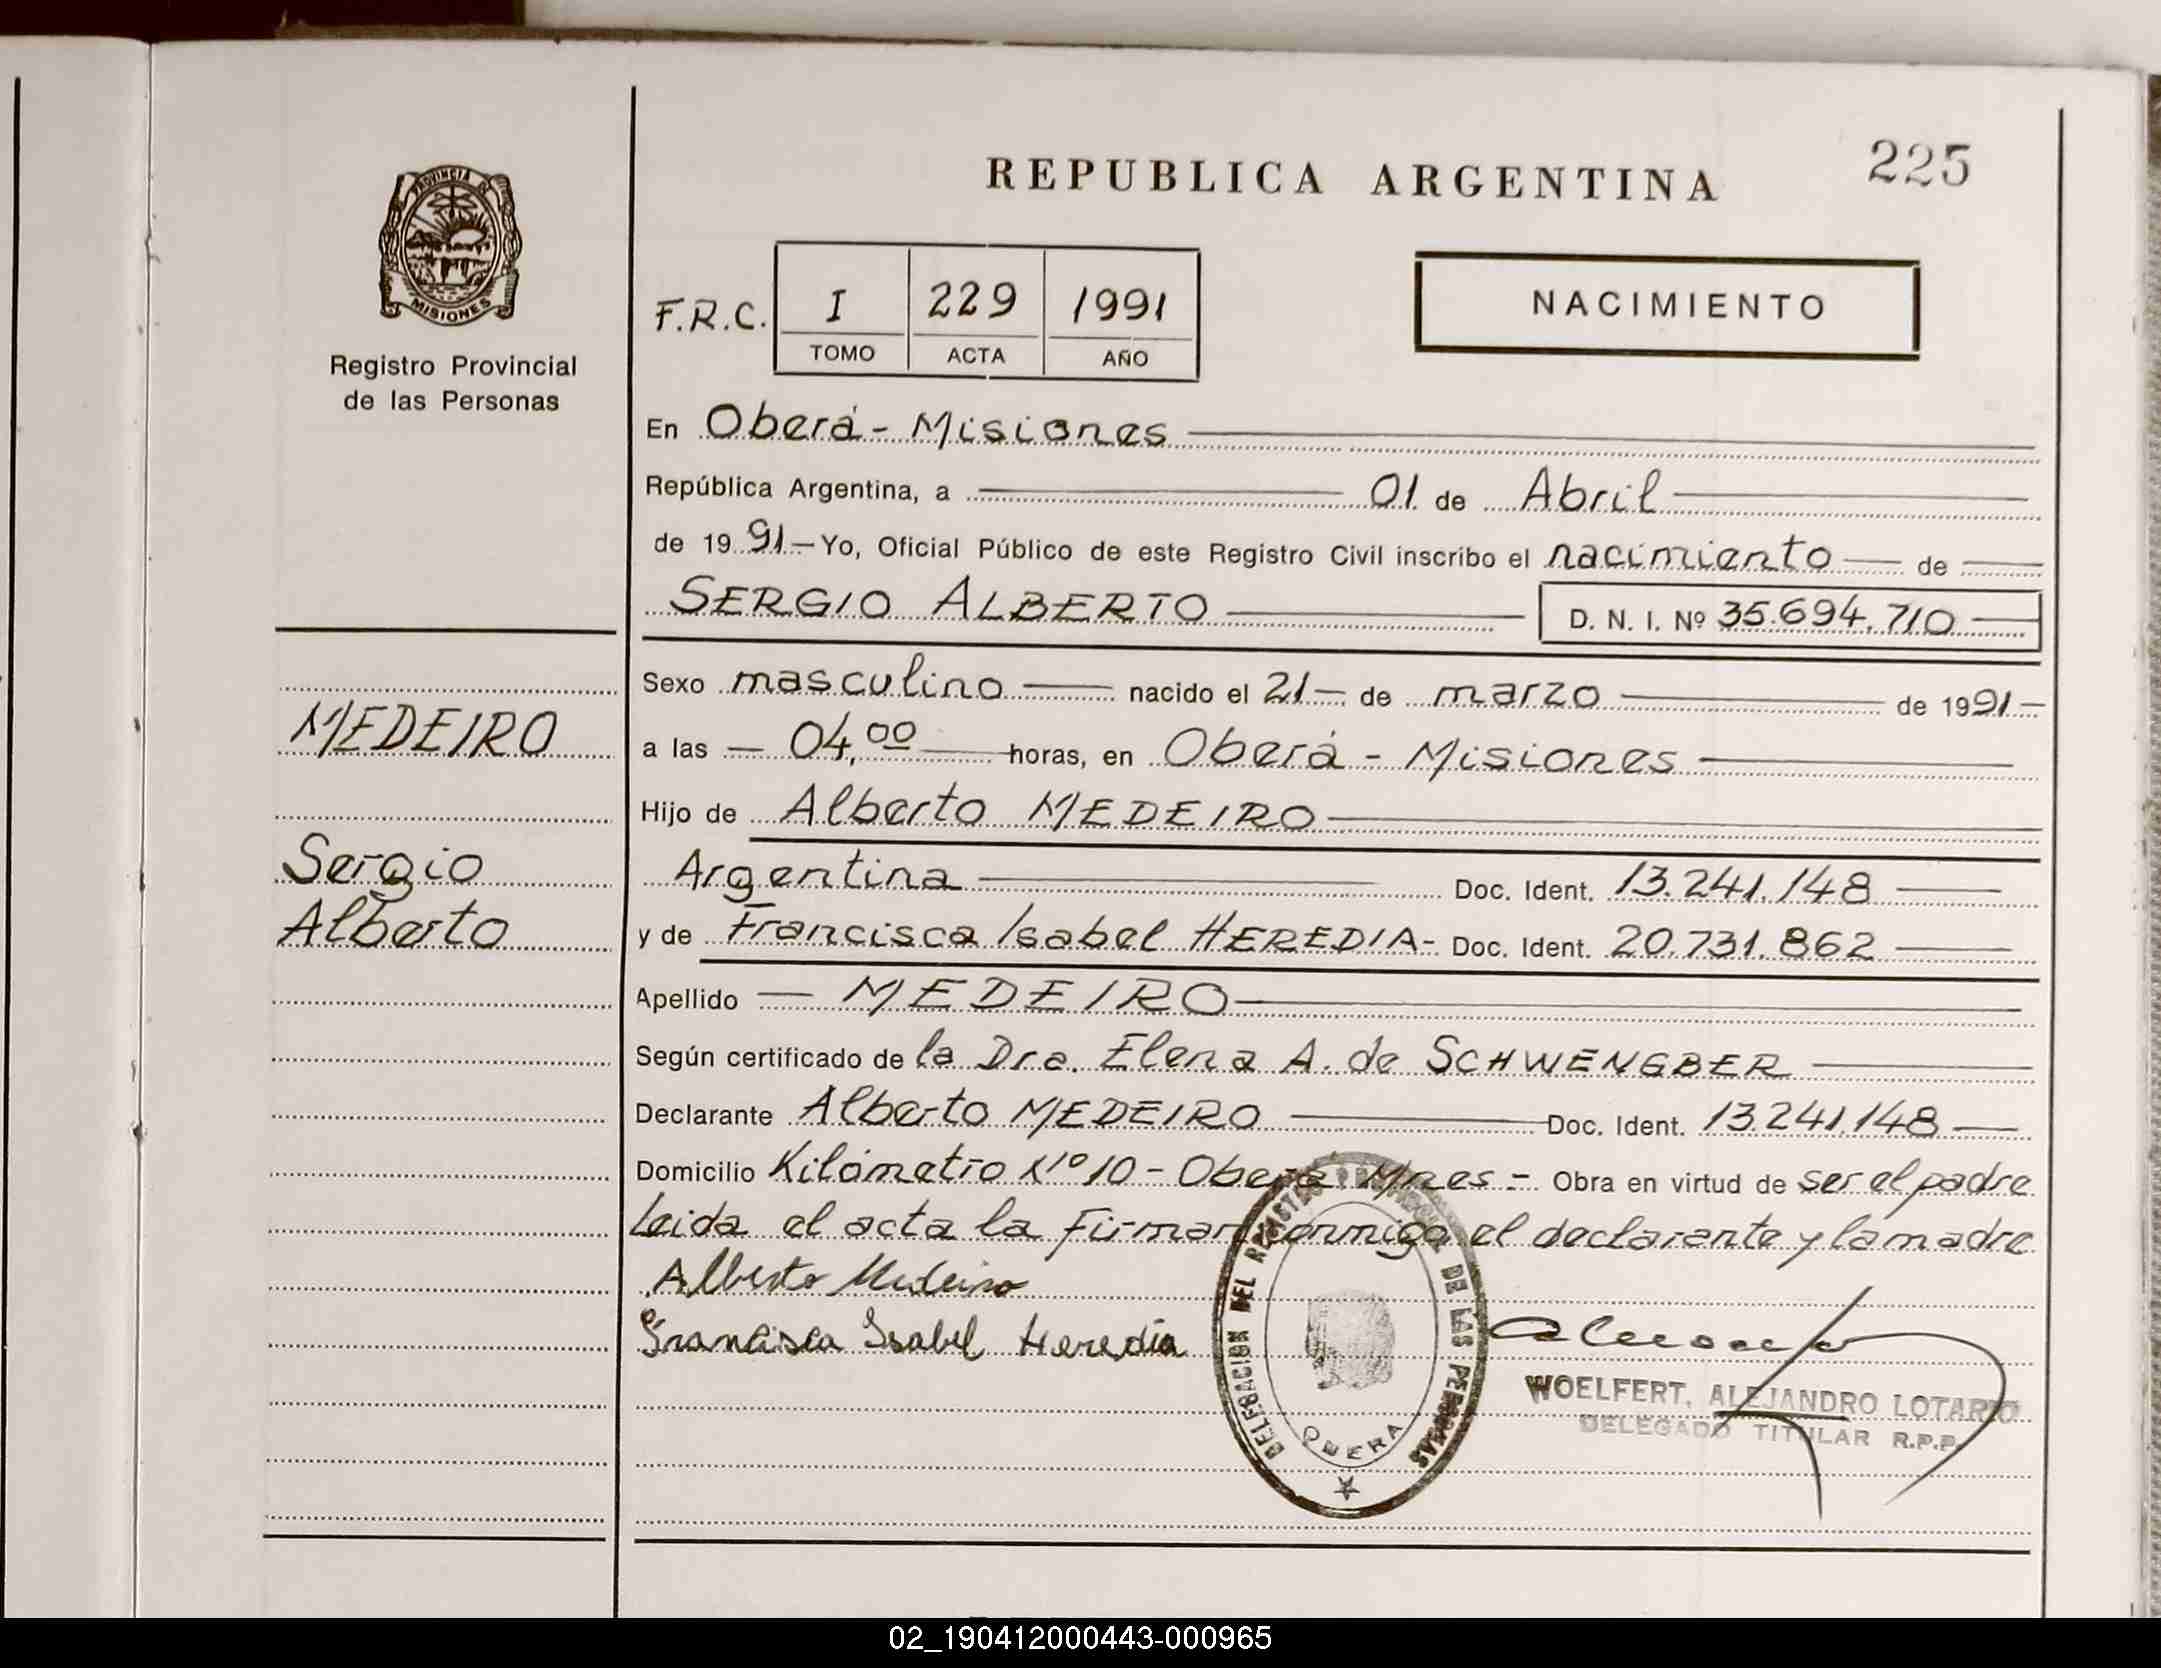 REPUBLICA ARGENTINA
225
PROVINCIA DE
MISIONES
Registro Provincial
de las Personas
F.R.C. I 229 1991
TOMO ACTA AÑO
NACIMIENTO
En Oberá - Misiones
República Argentina, a 01 de Abril
de 1991 - Yo, Oficial Público de este Registro Civil inscribo el nacimiento de
SERGIO ALBERTO D. N. I. Nº 35.694.710
Sexo masculino nacido el 21 de marzo de 1991
a las 04,00 horas, en Oberá - Misiones
Hijo de Alberto MEDEIRO
Argentina Doc. Ident. 13.241.148
y de Francisca Isabel HEREDIA - Doc. Ident. 20.731.862
Apellido MEDEIRO
Según certificado de la Dra. Elena A. de SCHWENGBER
Declarante Alberto MEDEIRO Doc. Ident. 13.241.148
Domicilio Kilómetro Nº 10 - Oberá Mnes - Obra en virtud de ser el padre
Leida el acta la firman conmigo el declarante y la madre
Alberto Medeiro
Francisca Isabel Heredia
MEDEIRO
Sergio
Alberto
DELEGACION DEL REGISTRO PROVINCIAL DE LAS PERSONAS
OBERA
WOELFERT, ALEJANDRO LOTARIO
DELEGADO TITULAR R.P.P.
02_190412000443-000965